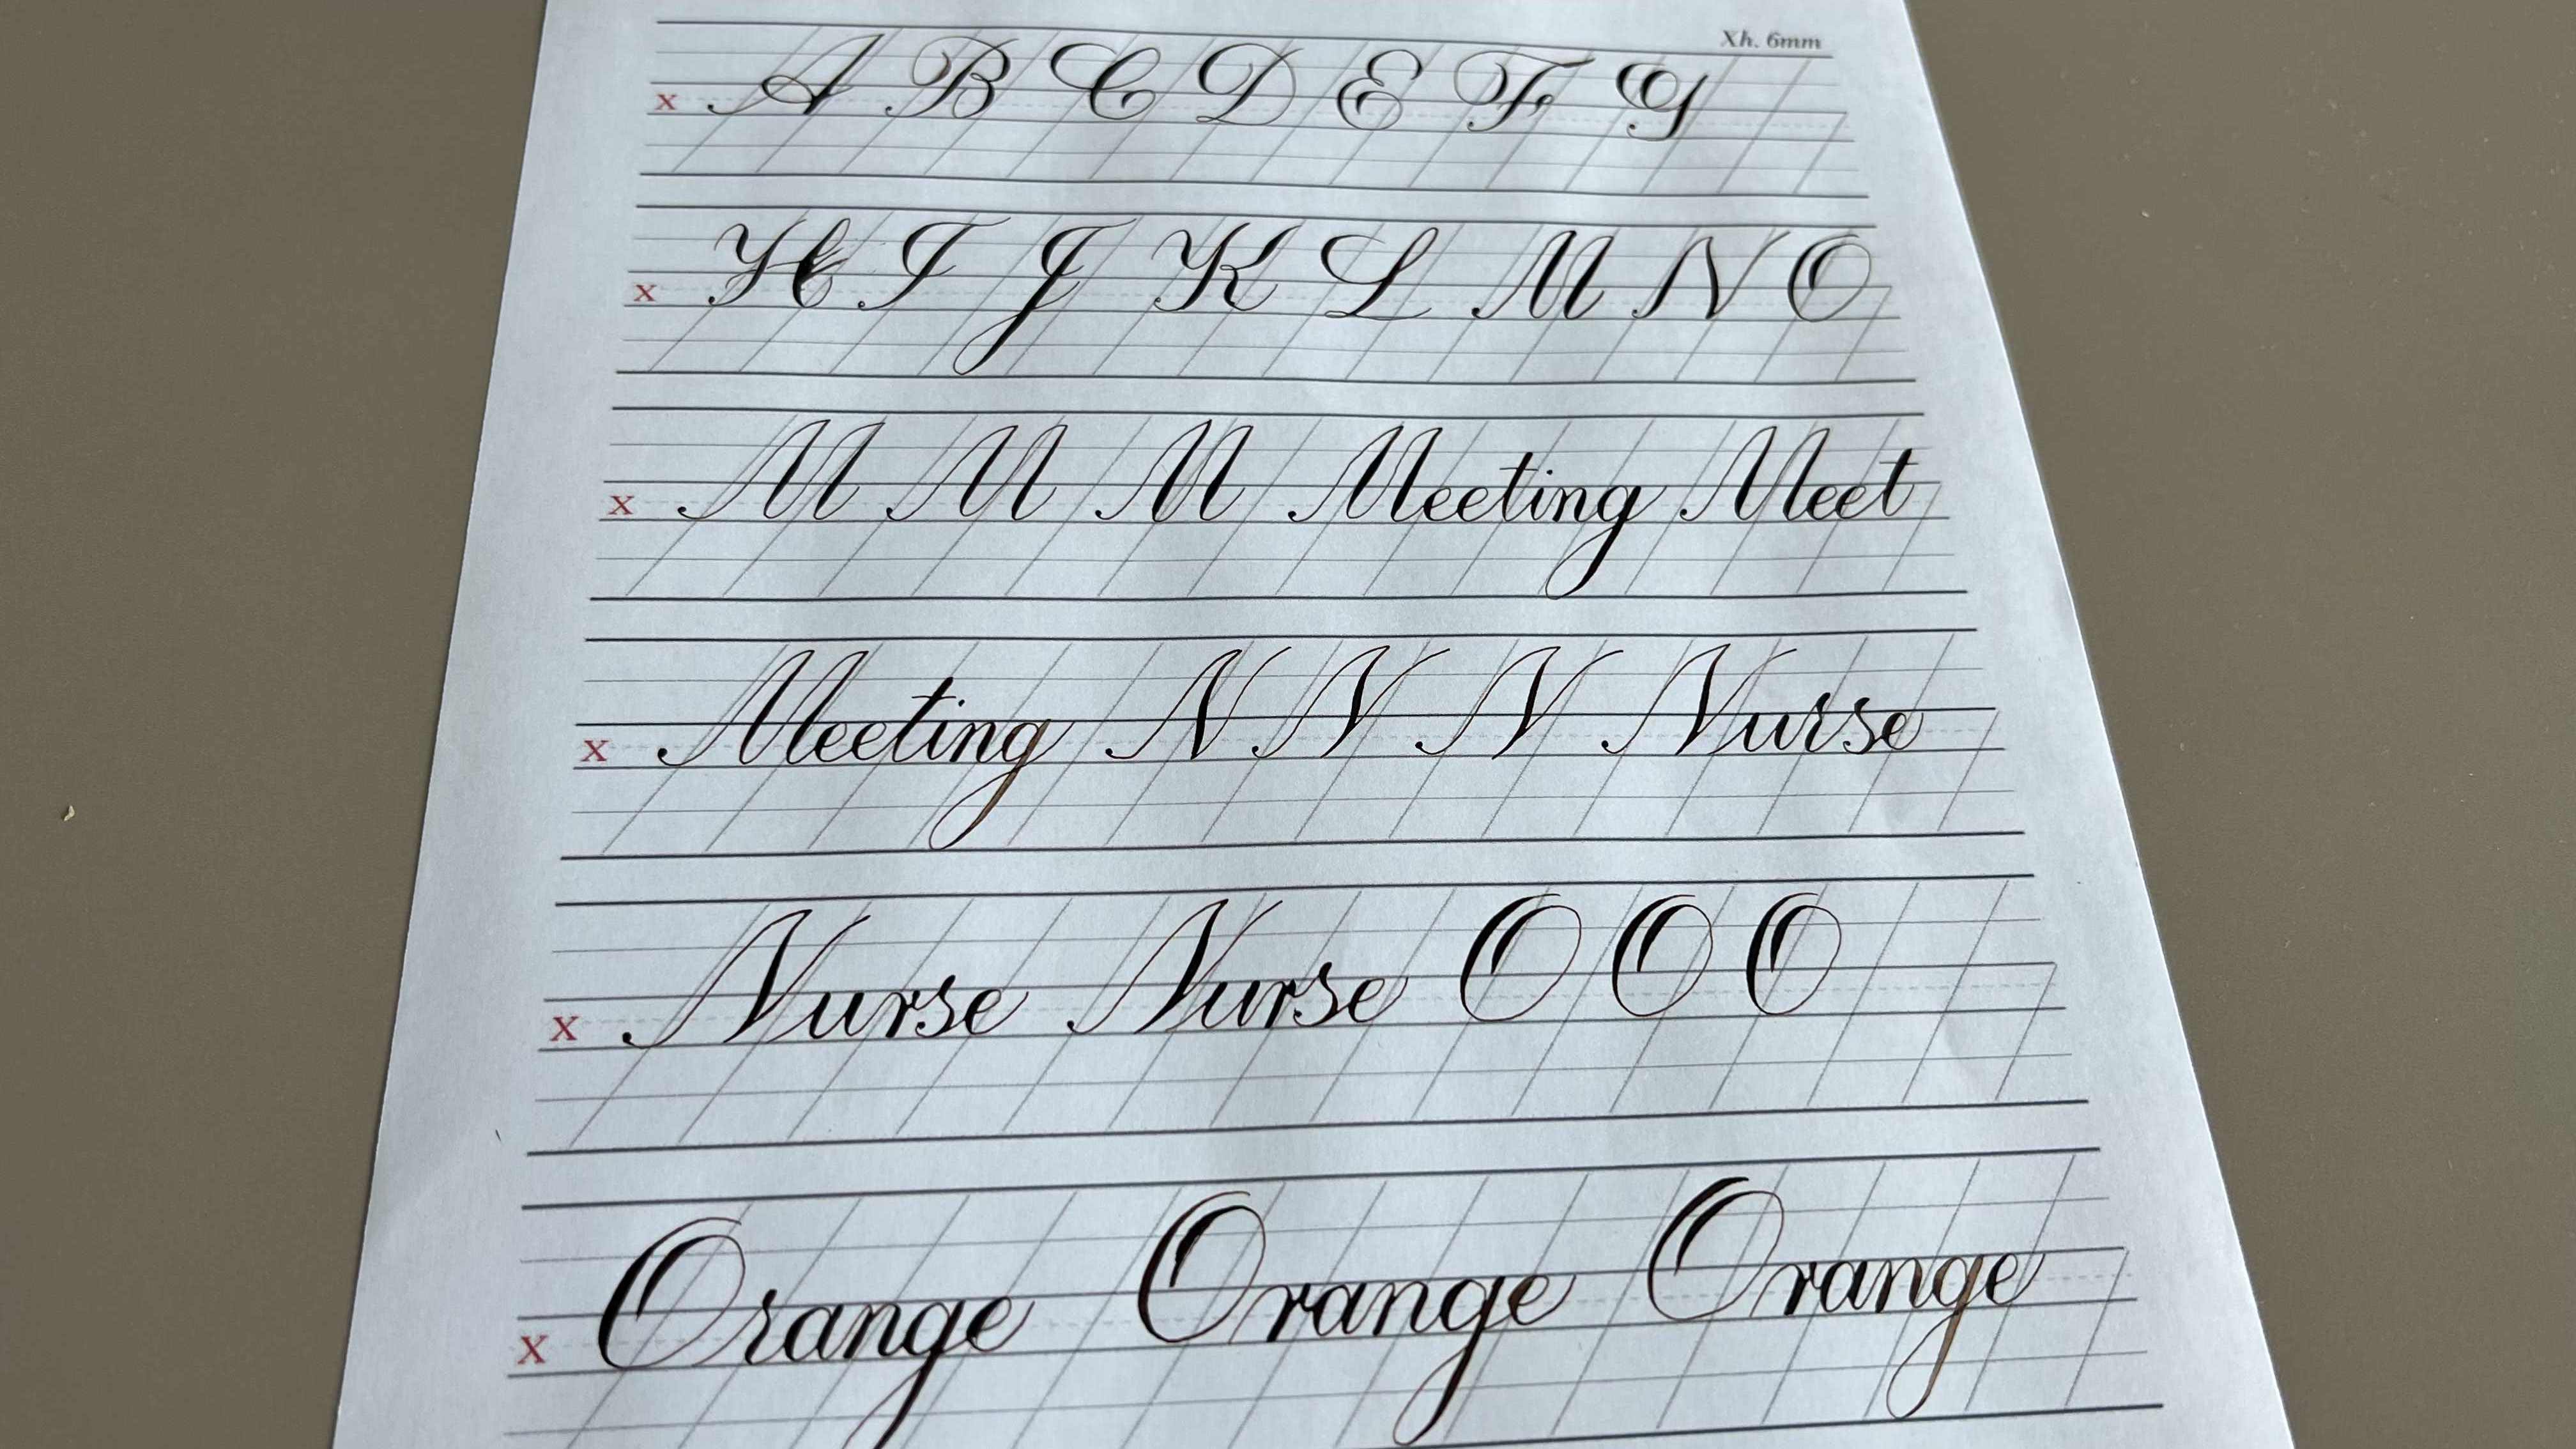 Xh. 6mm
x A B C D E F G
x H I J K L M N O
x M M M Meeting Meet
x Meeting N N N Nurse
x Nurse Nurse O O O
x Orange Orange Orange